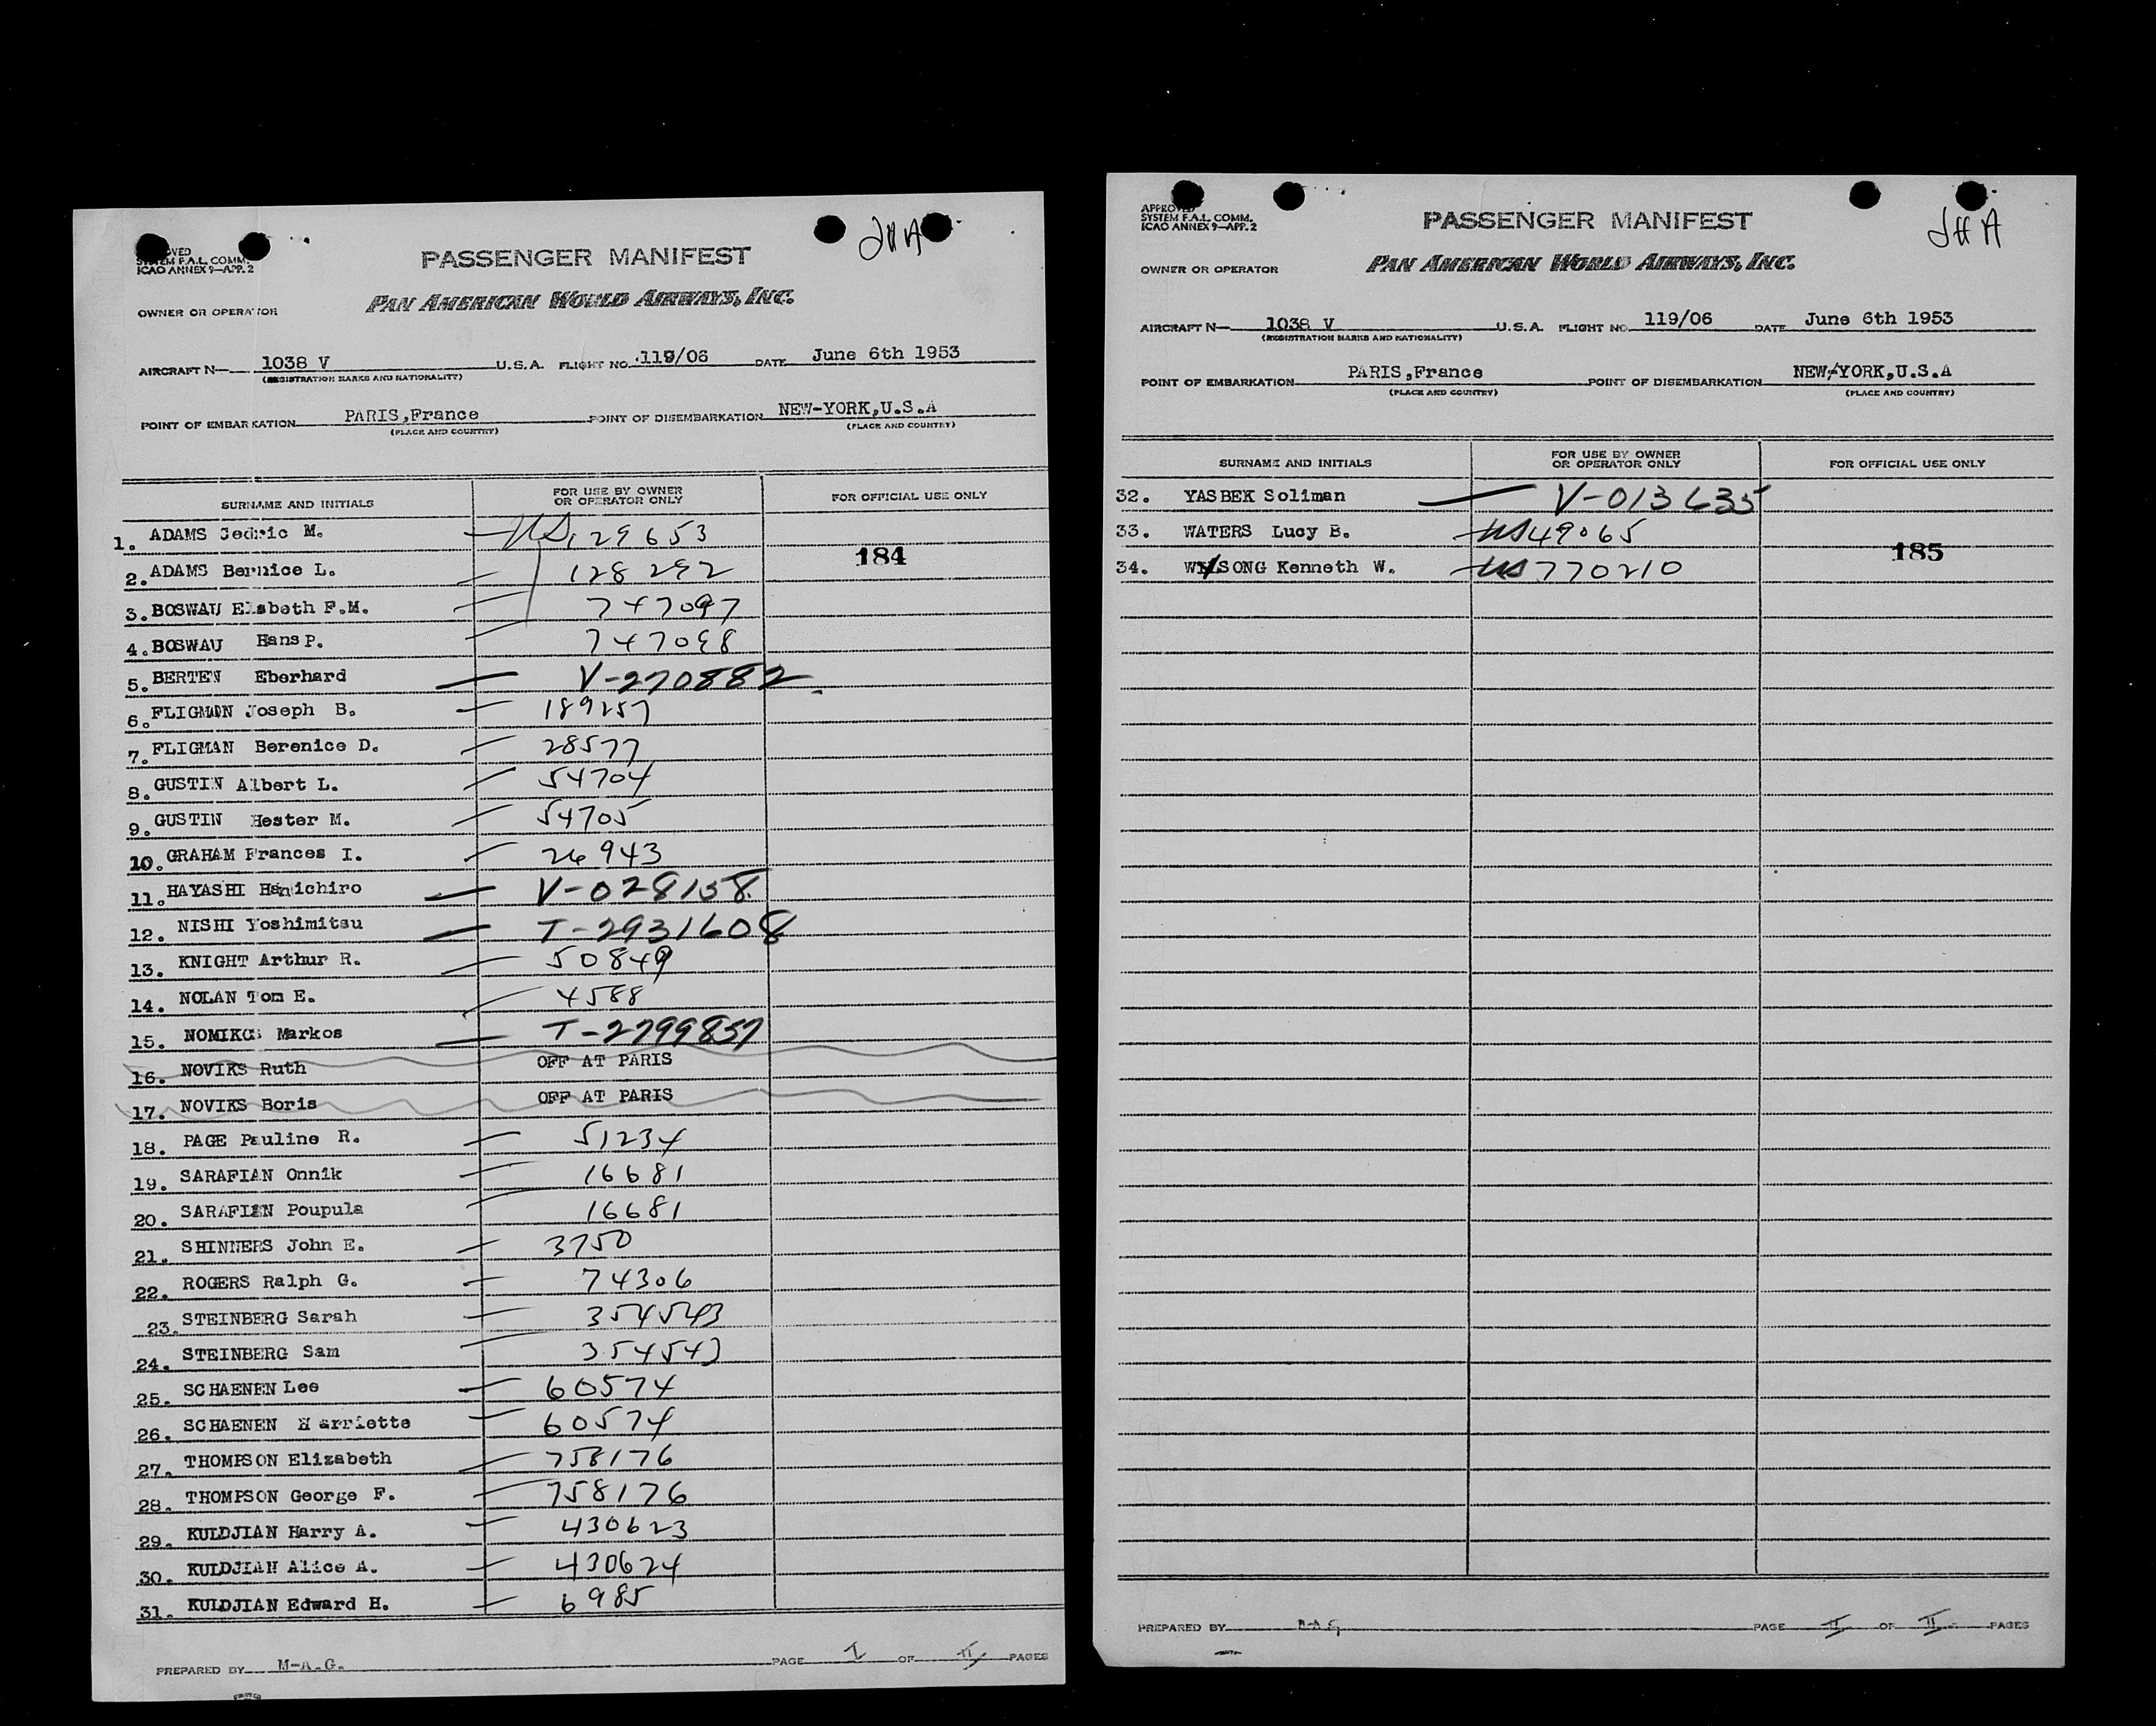 JHA
APPROVED
SYSTEM F.A.L. COMM.
ICAO ANNEX 9—APP. 2
PASSENGER MANIFEST
OWNER OR OPERATOR
PAN AMERICAN WORLD AIRWAYS, INC.
AIRCRAFT N— 1038 V U.S.A. FLIGHT NO. 119/06 DATE June 6th 1953
(REGISTRATION MARKS AND NATIONALITY)
POINT OF EMBARKATION PARIS,France POINT OF DISEMBARKATION NEW-YORK,U.S.A
(PLACE AND COUNTRY) (PLACE AND COUNTRY)
SURNAME AND INITIALS FOR USE BY OWNER OR OPERATOR ONLY FOR OFFICIAL USE ONLY
1. ADAMS Cedric M. US 129653
184
2. ADAMS Bernice L. 128292
3. BOSWAU Elsbeth F.M. 747097
4. BOSWAU Hans P. 747098
5. BERTEN Eberhard V-270882
6. FLIGMAN Joseph B. 189257
7. FLIGMAN Berenice D. 28577
8. GUSTIN Albert L. 54704
9. GUSTIN Hester M. 54705
10. GRAHAM Frances I. 26943
11. HAYASHI Hanichiro V-028158
12. NISHI Yoshimitsu T-2931608
13. KNIGHT Arthur R. 50849
14. NOLAN Tom E. 4588
15. NOMIKOS Markos T-2799857
16. NOVIKS Ruth OFF AT PARIS
17. NOVIKS Boris OFF AT PARIS
18. PAGE Pauline R. 51234
19. SARAFIAN Onnik 16681
20. SARAFIAN Poupula 16681
21. SHINNERS John E. 3750
22. ROGERS Ralph G. 74306
23. STEINBERG Sarah 354543
24. STEINBERG Sam 354543
25. SCHAENEN Lee 60574
26. SCHAENEN Harriette 60574
27. THOMPSON Elizabeth 758176
28. THOMPSON George F. 758176
29. KULDJIAN Harry A. 430623
30. KULDJIAN Alice A. 430624
31. KULDJIAN Edward H. 6985
PREPARED BY M-A.G. PAGE I OF II PAGES
JHA
APPROVED
SYSTEM F.A.L. COMM.
ICAO ANNEX 9—APP. 2
PASSENGER MANIFEST
OWNER OR OPERATOR
PAN AMERICAN WORLD AIRWAYS, INC.
AIRCRAFT N— 1038 V U.S.A. FLIGHT NO. 119/06 DATE June 6th 1953
(REGISTRATION MARKS AND NATIONALITY)
POINT OF EMBARKATION PARIS,France POINT OF DISEMBARKATION NEW-YORK,U.S.A
(PLACE AND COUNTRY) (PLACE AND COUNTRY)
SURNAME AND INITIALS FOR USE BY OWNER OR OPERATOR ONLY FOR OFFICIAL USE ONLY
32. YASBEK Soliman V-013635
33. WATERS Lucy B. US 49065
185
34. WYSONG Kenneth W. US 770210
PREPARED BY PAGE II OF II PAGES